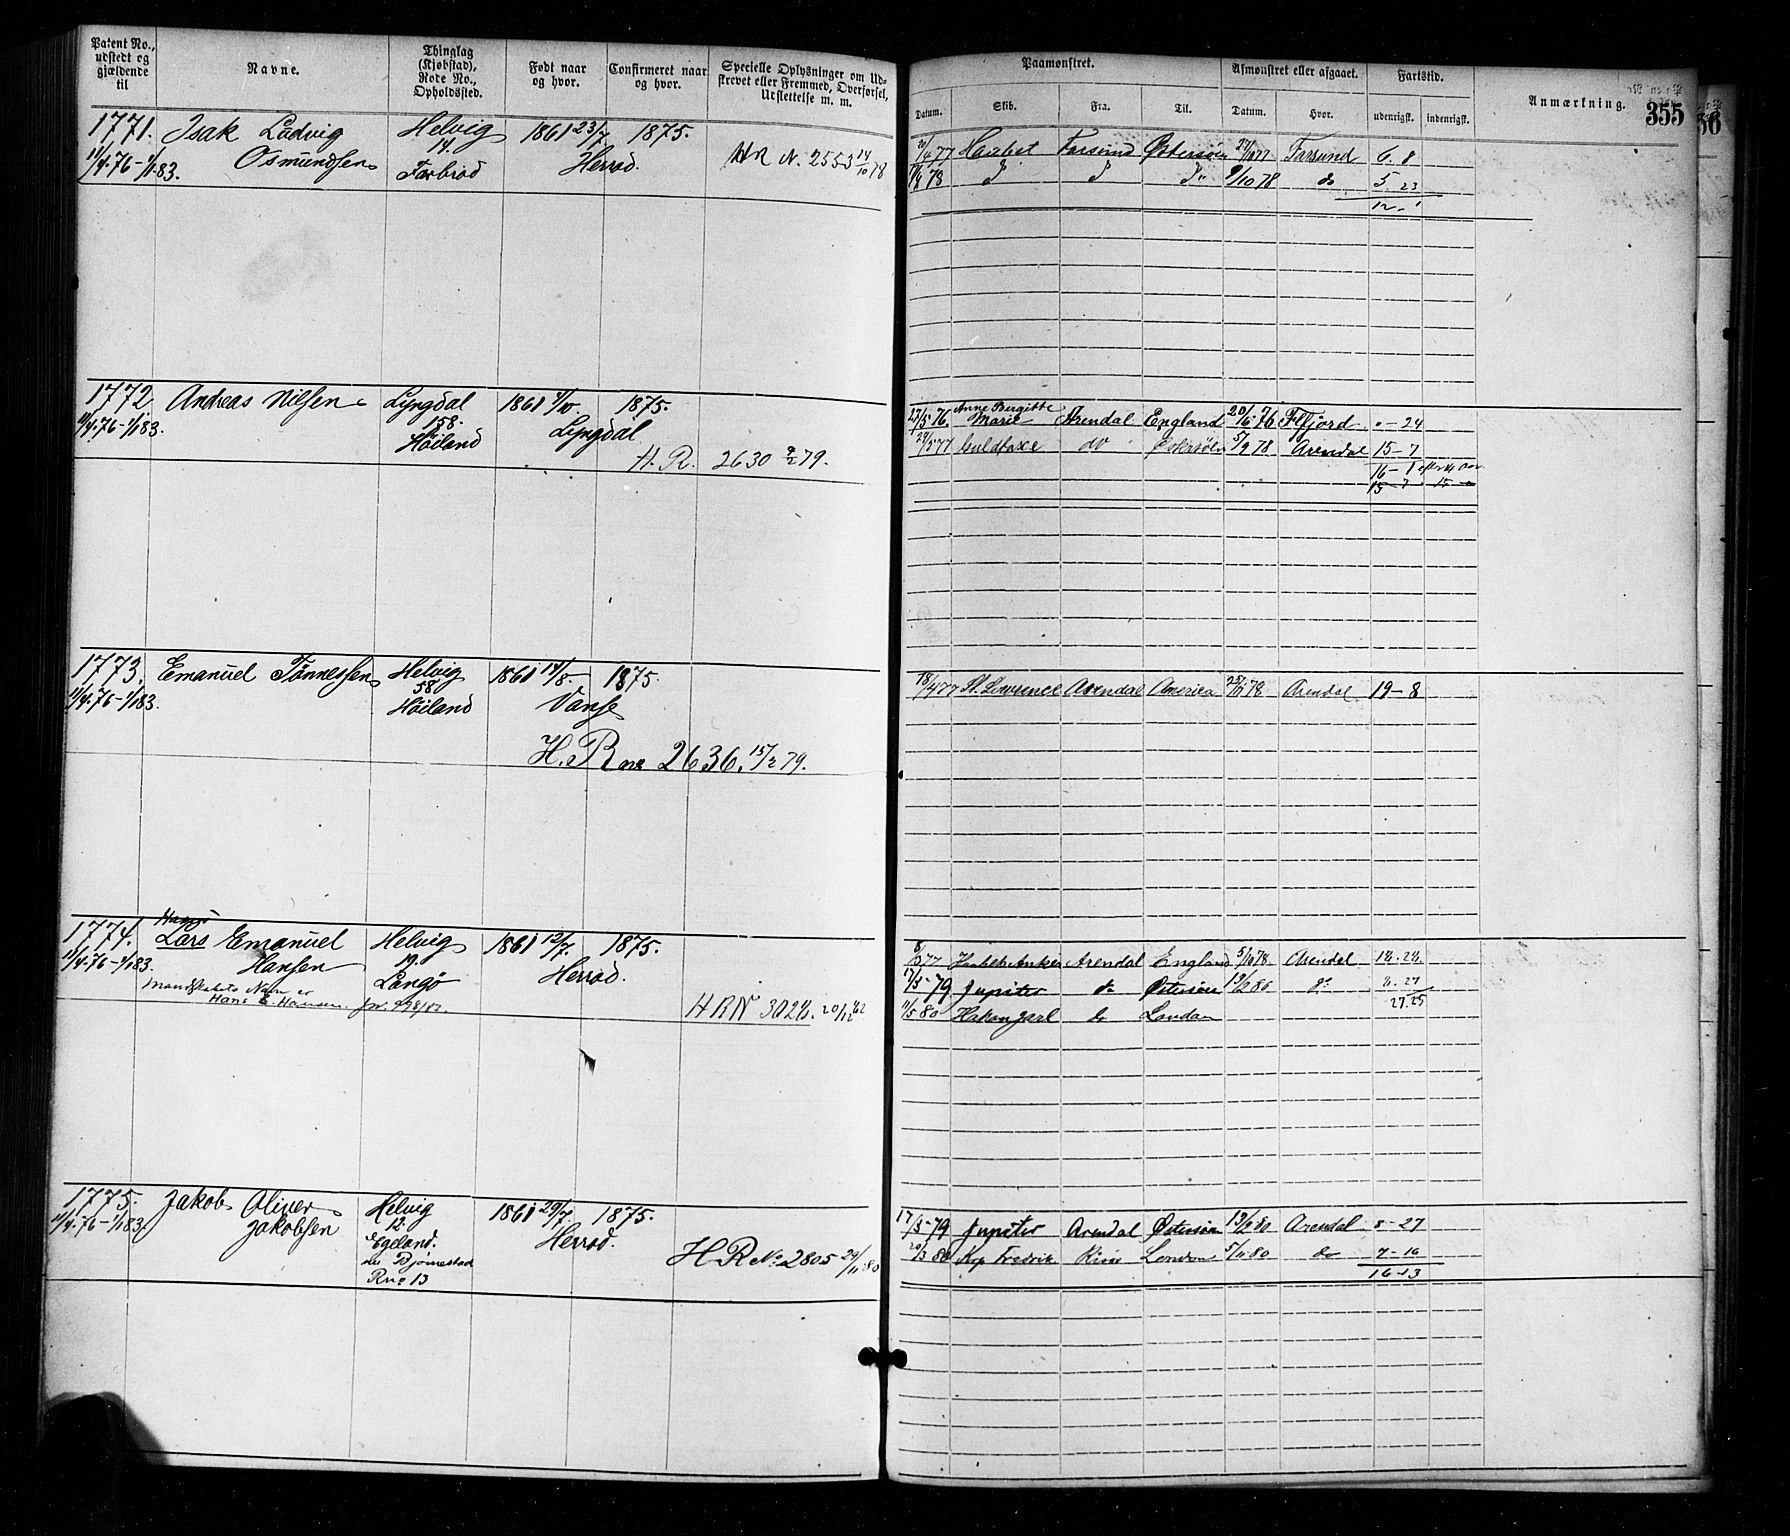 Patent No., udstedt og gjældende til
Navne.
Thinglag (Kjøbstad), Rode No., Opholdssted.
Født naar og hvor.
Confirmeret naar og hvor.
Specielle Oplysninger om Udskrevet eller Fremmed, Overførsel, Udslettelse m. m.
Paamønstret.
Datum.
Skib.
Fra.
Til.
Afmønstret eller afgaaet.
Datum.
Hvor.
Fartstid.
udenrigsk.
indenrigsk.
Anmærkning.
355
56
1771. Isak Ludvig Helvig 1861 23/7 1875.
11/4-76-1/1 83. Osmundsen 14. Herrad.
Farbrod
HR N. 2553 14/10 78
20/4 77 Farsund Østersøen 77 Farsund 6. 8
78 9/10 78 do 5 23
12. 1
1772 Andreas Nilsen Lyngdal 1861 1875.
11/4-76-1/1 83. 158. Lyngdal
Høiland
H. R. 2630 79.
76 Anne Birgitte
Marie Arendal England 76 - 24
77 do Østersøen 5/9 78 Arendal 15-7
16-1
15 7
1773. Emanuel Tønnessen Helvig 1861 14/8 1875.
11/4-76-1/1 83. 58 Vanse
Høiland
H. R no 2636. 15/2 79.
18/4 77 St. Lawrence Arendal America 78 Arendal 19-8
1774. Hans
Lars Emanuel Helvig 1861 12/7. 1875.
11/4-76-1/1 83. Hansen 19. Herrad.
Langø
Mandskabets Navn er
Hans E. Hansen
HRN 3024. 20/12 82
77 Arendal England 5/10 78 Arendal 18. 28
17/3-79 Jupiter do Østersøen 19/2 80 do 8. 27
27.25
11/5 80 Hakon Jarl do London
1775. Jakob Oliver Helvig 1861 29/7. 1875.
11/4-76-1/1 83 Jakobsen 12. Herrad.
Egeland.
nu Bjørnestad
R no 13
H R No 2805 29/11 80
17/3-79 Jupiter Arendal Østersøen 19/2 80 Arendal 8-27
20/3 80 Kep Fredrik London 5/11 80 do 7-16
16-13